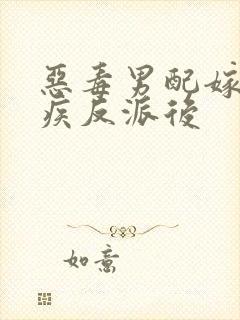 惡毒男配嫁
疾反派後
如意